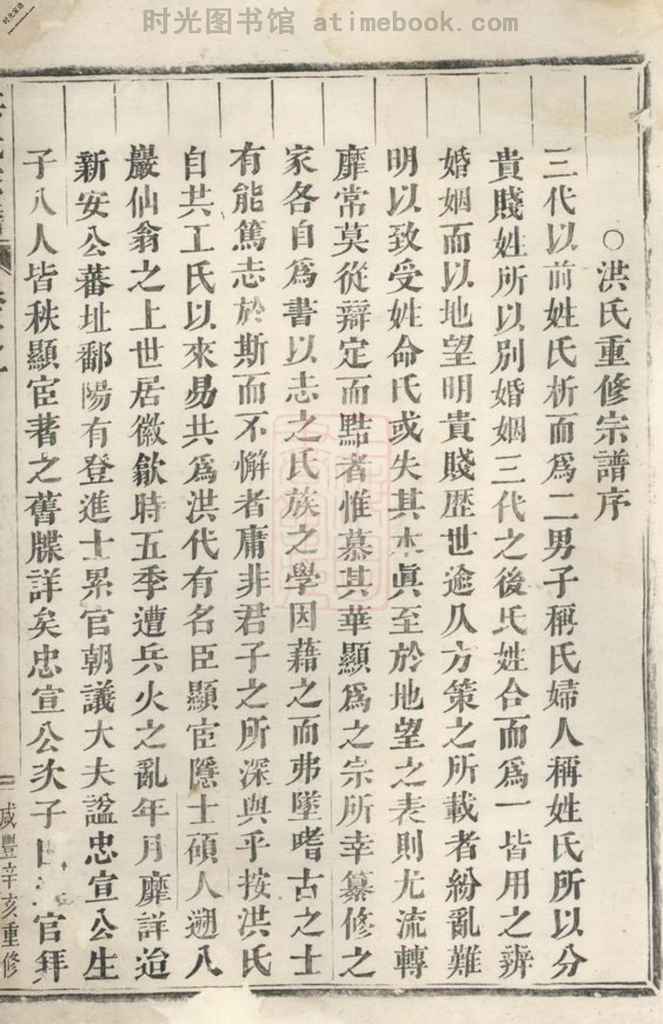 时光图书馆 atimebook.com
时光家谱
○洪氏重修宗譜序
三代以前姓氏析而爲二男子稱氏婦人稱姓氏所以分
貴賤姓所以別婚姻三代之後氏姓合而爲一皆用之辨
婚姻而以地望明貴賤歷世逾久方策之所載者紛亂難
明以致受姓命氏或失其本眞至於地望之表則尤流轉
靡常莫從辯定而黠者惟慕其華顯爲之宗所幸纂修之
家各自爲書以志之氏族之學因藉之而弗墜嗜古之士
有能篤志於斯而不懈者庸非君子之所深與乎按洪氏
自共工氏以來易共爲洪代有名臣顯宦隱士碩人遡八
巖仙翁之上世居徽歙時五季遭兵火之亂年月靡詳迨
新安公蕃址鄱陽有登進士累官朝議大夫諡忠宣公生
子八人皆秩顯宦著之舊牒詳矣忠宣公次子曰官拜
咸豐辛亥重修